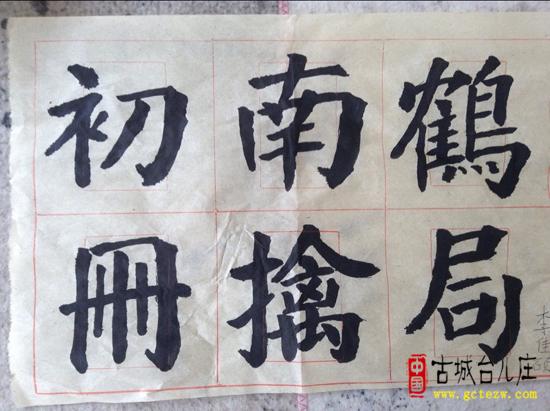 鶴局
南擒
初冊
李佳
中国
古城台儿庄
www.gctezw.com